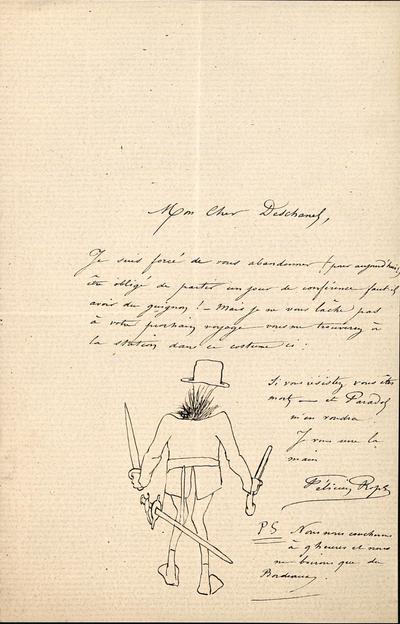 Mon Cher Deschanel,
Je suis forcé de vous abandonner (pour aujourd'hui)
être obligé de partir un jour de conférence faut-il
avoir du guignon ! — Mais je ne vous lâche pas
à votre prochain voyage vous me trouverez à
la station dans ce costume ci :
Si vous résistez vous êtes
mort — et Paradol
m'en voudra
Je vous serre la
main
Félicien Rops
PS Nous nous coucherons
à 9 heures et nous
ne boirons que du
Bordeaux.